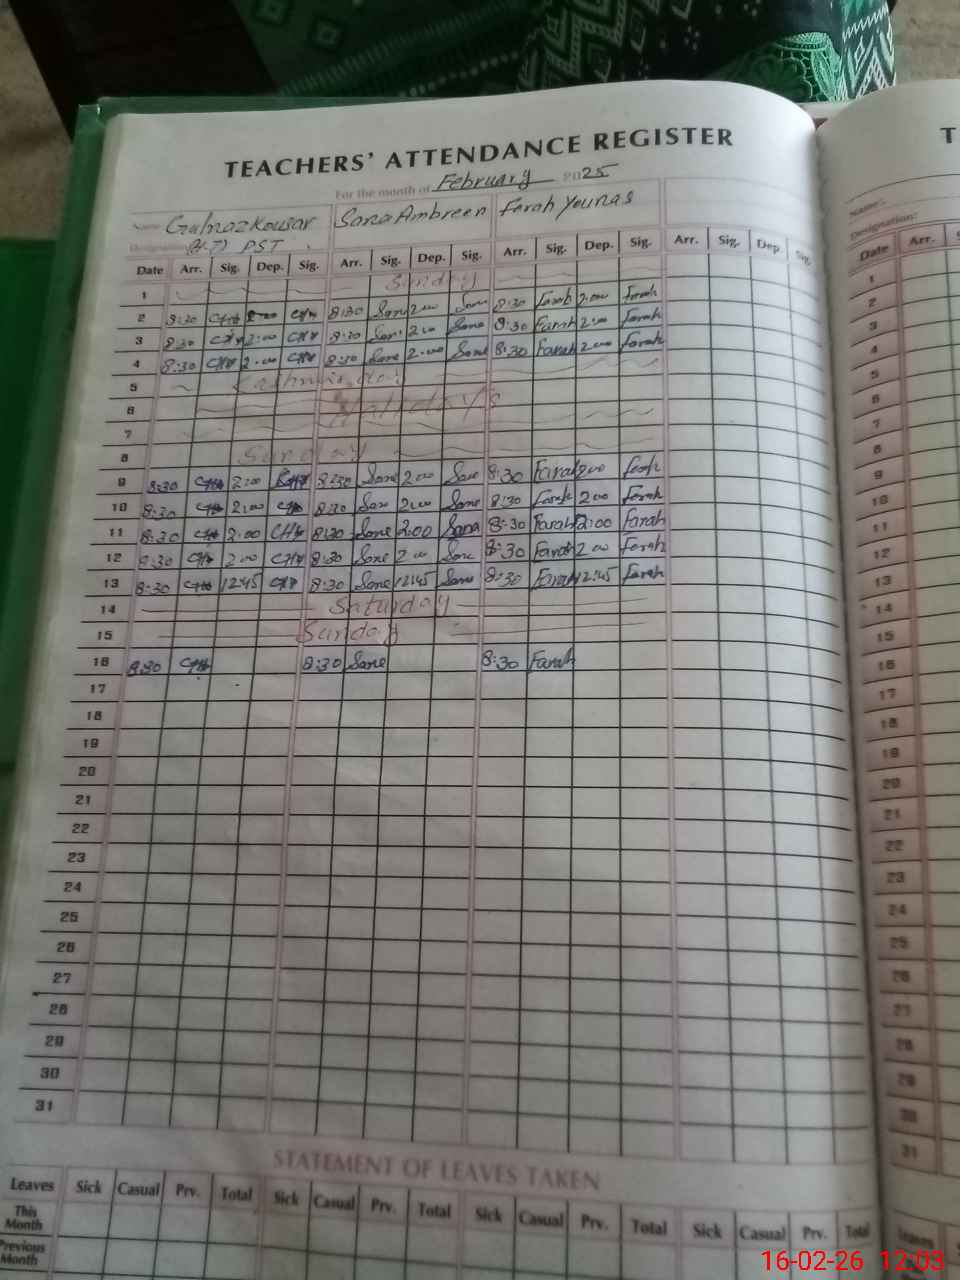 TEACHERS' ATTENDANCE REGISTER
For the month of February 2025
Name Gulnaz Kousar Sana Ambreen Farah Younas
Designation (H.T) PST
Date Arr. Sig. Dep. Sig. Arr. Sig. Dep. Sig. Arr. Sig. Dep. Sig. Arr. Sig. Dep. Sig.
1 Sunday
2 8:30 2:00 8:30 Sana 2:00 Sana 8:30 Farah 2:00 Farah
3 8:30 2:00 8:30 Sana 2:00 Sana 8:30 Farah 2:00 Farah
4 8:30 2:00 8:30 Sana 2:00 Sana 8:30 Farah 2:00 Farah
5 Kashmir day
6 Holidays
7
8 Sunday
9 8:30 2:00 8:30 Sana 2:00 Sana 8:30 Farah 2:00 Farah
10 8:30 2:00 8:30 Sana 2:00 Sana 8:30 Farah 2:00 Farah
11 8:30 2:00 8:30 Sana 2:00 Sana 8:30 Farah 2:00 Farah
12 8:30 2:00 8:30 Sana 2:00 Sana 8:30 Farah 2:00 Farah
13 8:30 12:45 8:30 Sana 12:45 Sana 8:30 Farah 12:45 Farah
14 Saturday
15 Sunday
16 8:30 8:30 Sana 8:30 Farah
17
18
19
20
21
22
23
24
25
26
27
28
29
30
31
STATEMENT OF LEAVES TAKEN
Leaves Sick Casual Prv. Total Sick Casual Prv. Total Sick Casual Prv. Total Sick Casual Prv. Total
This Month
Previous Month
T
Name:
Designation:
Date Arr. S
1
2
3
4
5
6
7
8
9
10
11
12
13
14
15
16
17
18
19
20
21
22
23
24
25
26
27
28
29
30
31
Leaves
16-02-26 12:03